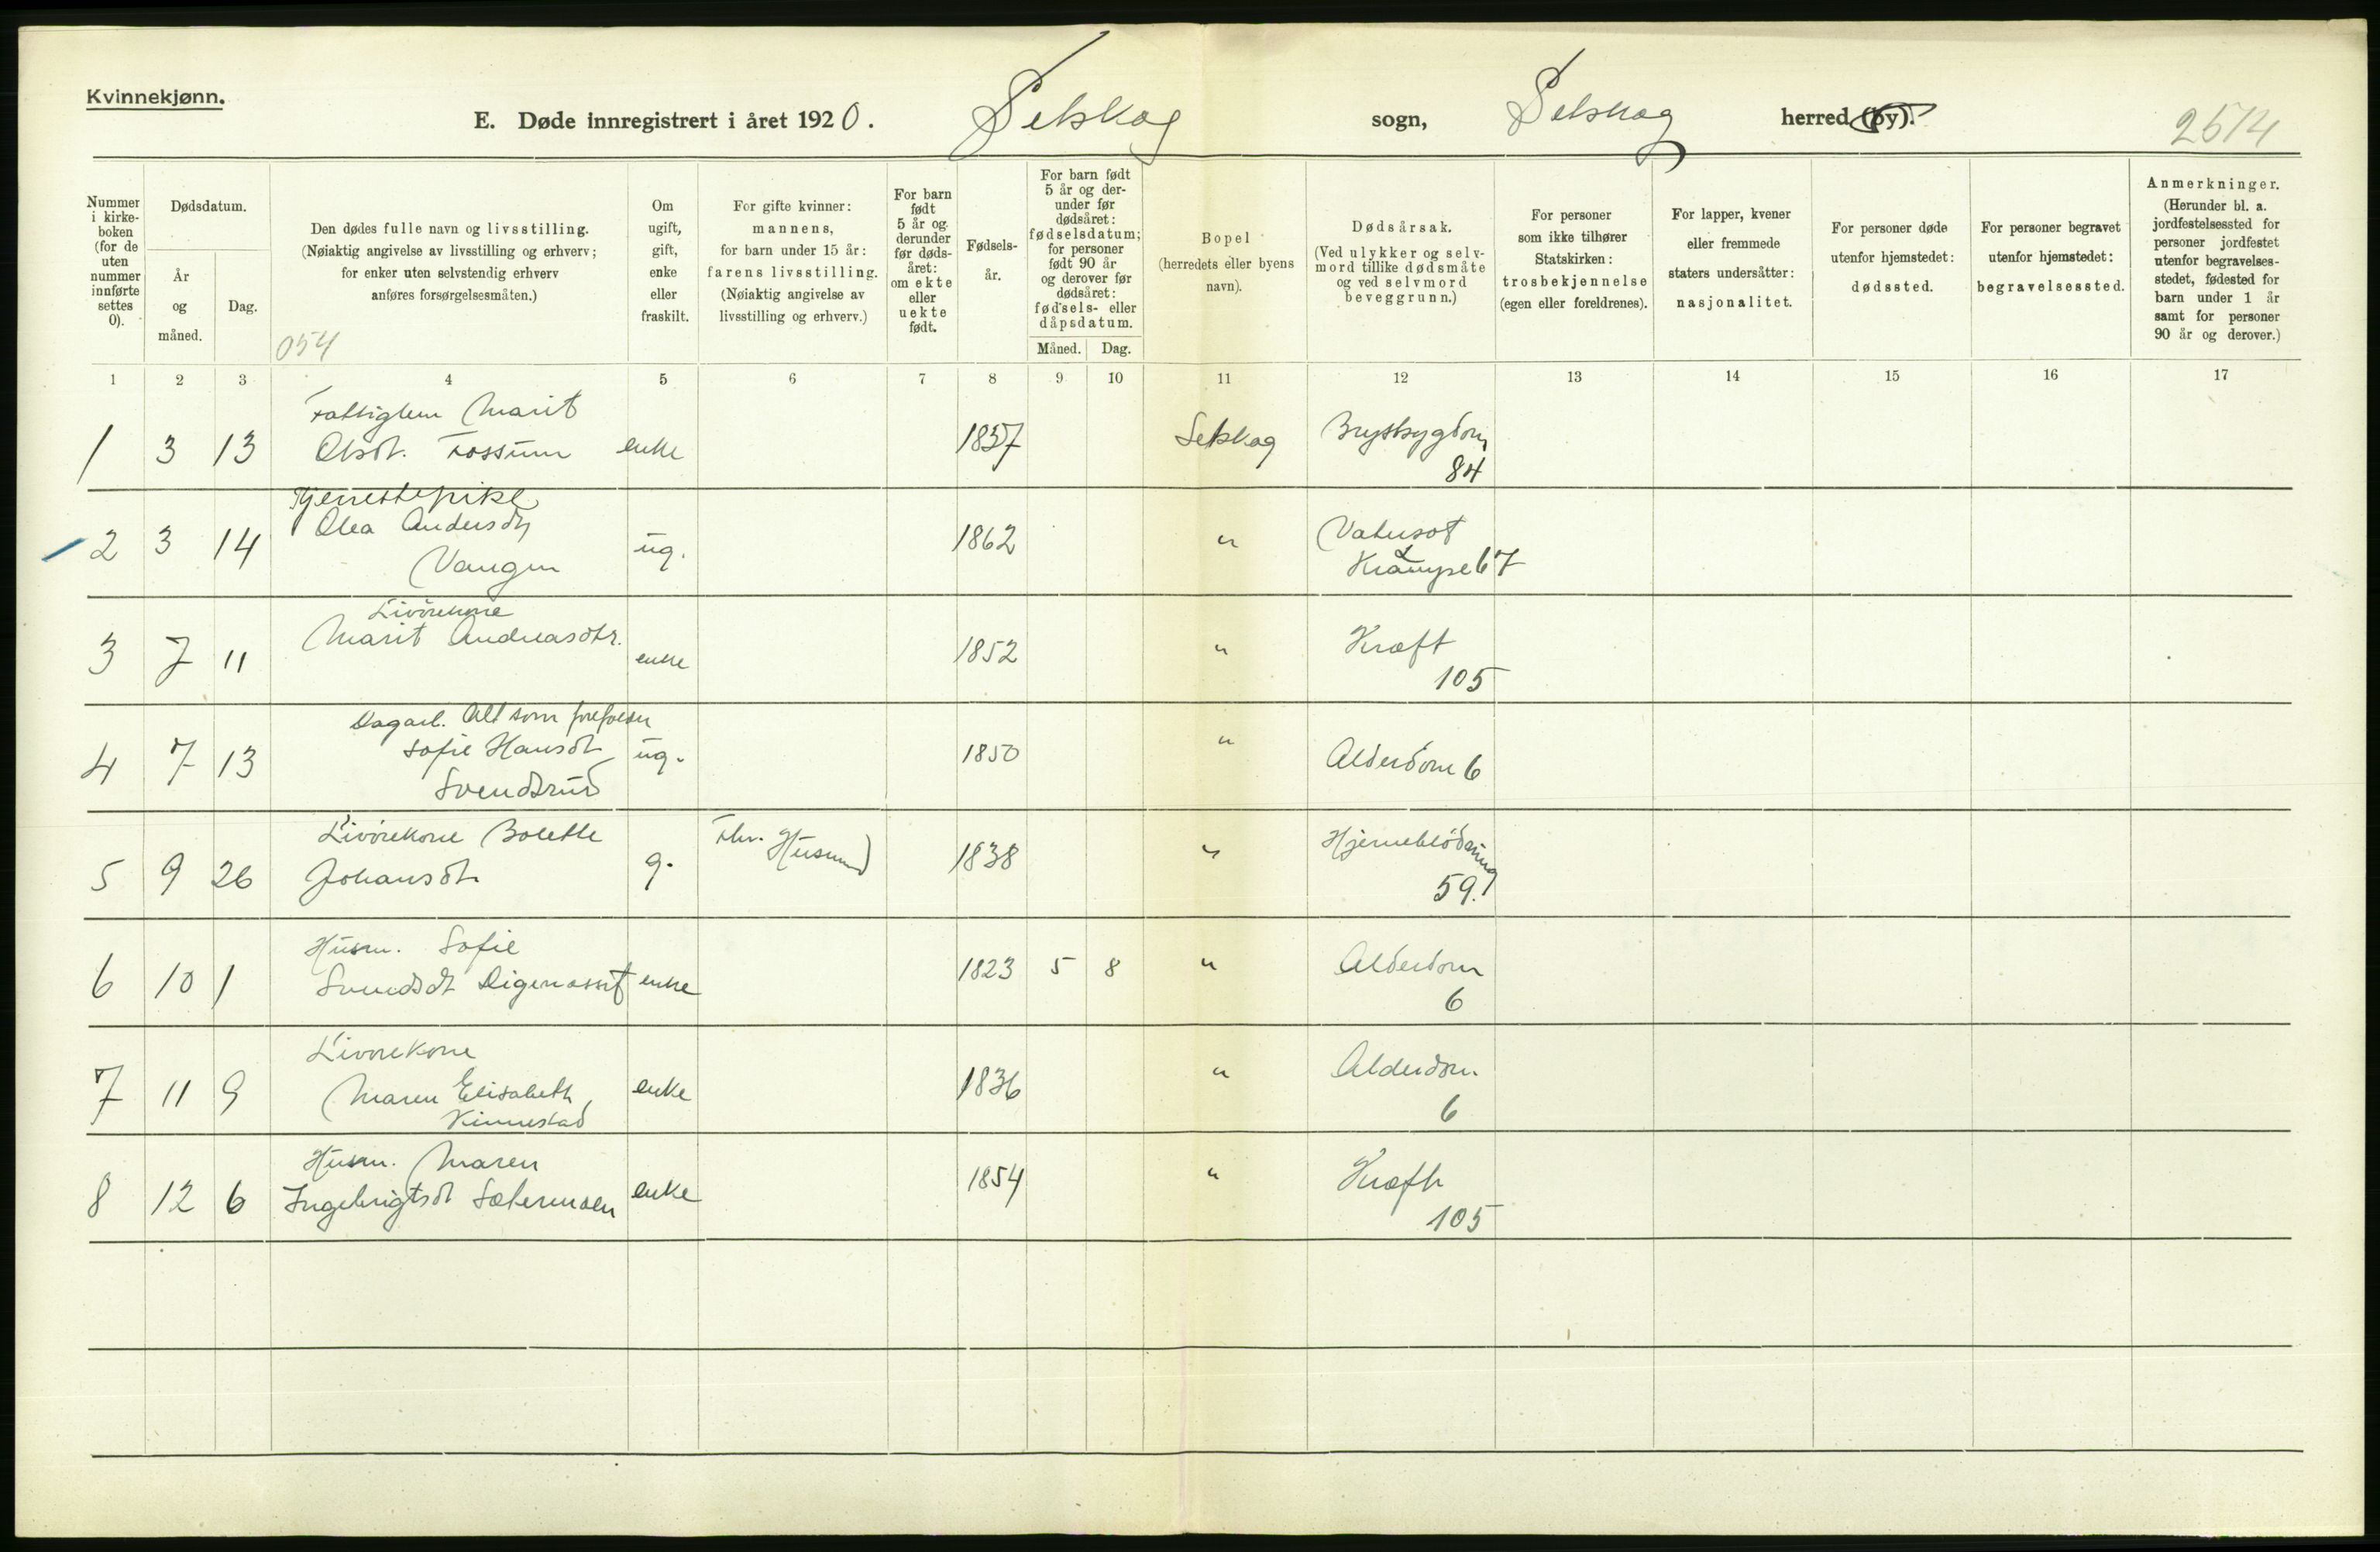 Kvinnekjønn.
E. Døde innregistrert i året 1920. Setskog sogn, Setskog herred (by).
2574
Nummer i kirkeboken (for de uten nummer innførte settes 0).
Dødsdatum.
År og måned.
Dag.
Den dødes fulle navn og livsstilling.
(Nøiaktig angivelse av livsstilling og erhverv;
for enker uten selvstendig erhverv
anføres forsørgelsesmåten.)
054
Om ugift, gift, enke eller fraskilt.
For gifte kvinner:
mannens,
for barn under 15 år:
farens livsstilling.
(Nøiaktig angivelse av
livsstilling og erhverv.)
For barn født 5 år og derunder før dødsåret: om ekte eller uekte født.
Fødselsår.
For barn født 5 år og derunder før dødsåret: fødselsdatum; for personer født 90 år og derover før dødsåret: fødsels- eller dåpsdatum.
Måned.
Dag.
Bopel
(herredets eller byens
navn).
Dødsårsak.
(Ved ulykker og selvmord tillike dødsmåte
og ved selvmord
beveggrunn.)
For personer
som ikke tilhører
Statskirken:
trosbekjennelse
(egen eller foreldrenes).
For lapper, kvener
eller fremmede
staters undersåtter:
nasjonalitet.
For personer døde
utenfor hjemstedet:
dødssted.
For personer begravet
utenfor hjemstedet:
begravelsessted.
Anmerkninger.
(Herunder bl. a.
jordfestelsessted for
personer jordfestet
utenfor begravelses-
stedet, fødested for
barn under 1 år
samt for personer
90 år og derover.)
1 2 3 4 5 6 7 8 9 10 11 12 13 14 15 16 17
Fattiglem Marit
1 3 13 Olsdt. Fossum enke 1837 Setskog Brystsygdom
84
Tjenestepike
Olea Andersdt
2 3 14 Vangen ug. 1862 " Vatersot
67
Livörekone
Marit Andreasdtr.
3 7 11 enke 1852 " Kræft
105
Dagarb. Alt som forefalder
Sofie Hansdt
4 7 13 Svendsrud ug. 1850 " Alderdom 6
Livörekone Bolette
5 9 26 Johansdt g. Fhv. Husmand 1838 " Hjerneblödning
59.
Husm. Sofie
6 10 1 Svendsdt enke 1823 5 8 " Alderdom
6
Livörekone
7 11 9 Maren Elisabeth enke 1836 " Alderdom
Kinnestad 6
Husm. Maren
8 12 6 Ingebrigtsdt Sætermoen enke 1854 " Kræft
105